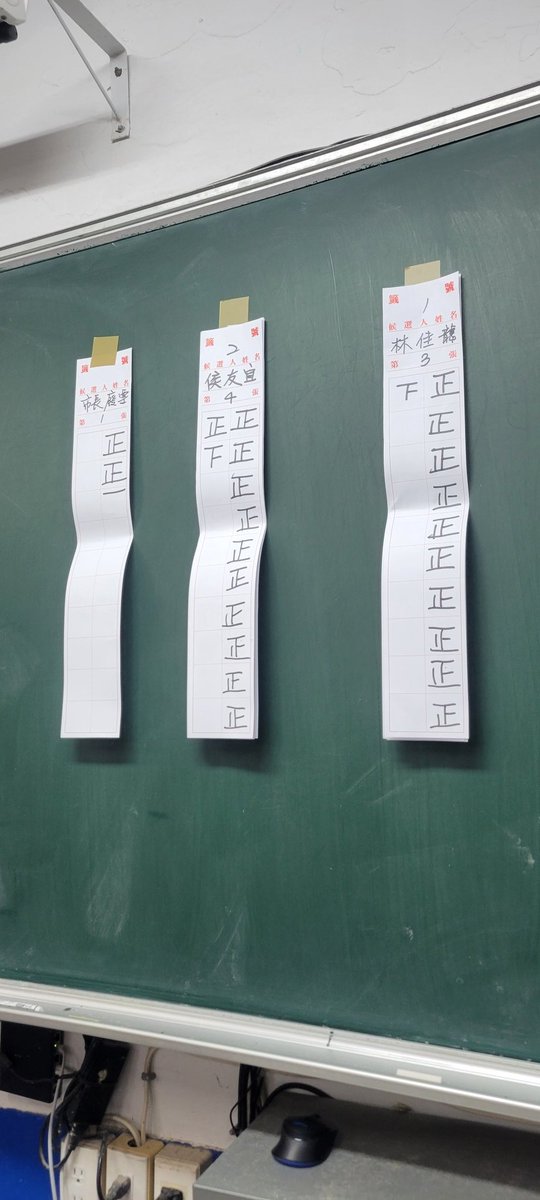 籤 號
候選人姓名
市長廢票
第 1 張
正
正一
籤 號
2
候選人姓名
侯友宜
第 4 張
正 正
下 正
正
正
正
正
正
正
正
正
籤 號
1
候選人姓名
林佳龍
第 3 張
下 正
正
正
正
正
正
正
正
正
正